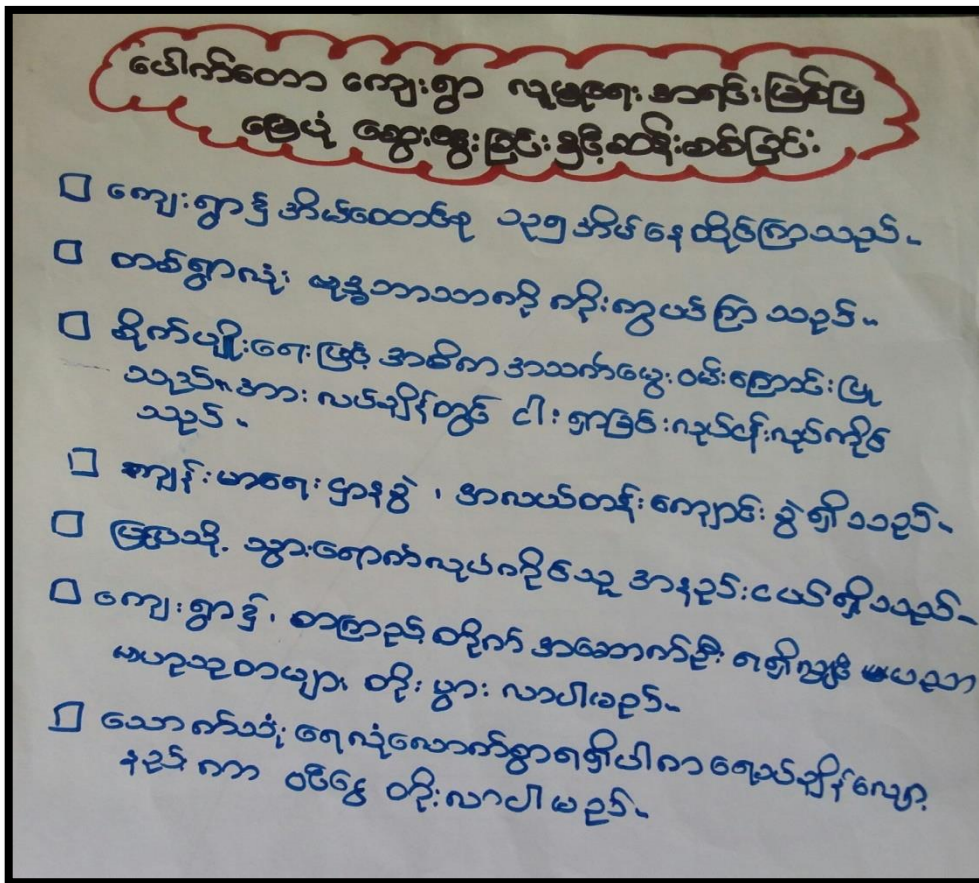 ပေါက်တော ကျေးရွာ လူမှုရေး အရင်းမြစ်ပြ
မြေပုံ ဆွေးနွေးခြင်းနှင့်ဆန်းစစ်ခြင်း
□ ကျေးရွာ၌ အိမ်ထောင်စု အိမ်နေထိုင်ကြသည်။
□ တစ်ရွာလုံး ဗုဒ္ဓဘာသာကို ကိုးကွယ်ကြ သည်။
□ စိုက်ပျိုးရေးဖြင့် အဓိက အသက်မွေး ဝမ်းကြောင်းပြု
သည်။ အားလပ်ချိန်တွင် ငါးရှာခြင်းလုပ်ငန်းလုပ်ကိုင်
သည်။
□ ကျန်းမာရေးဌာနခွဲ ၊ အလယ်တန်းကျောင်းခွဲ ရှိသည်။
□ မြို့ပေါ်သို့ သွားရောက်လုပ်ကိုင်သူ အနည်းငယ်ရှိသည်။
□ ကျေးရွာ၌၊ စာကြည့်တိုက် အဆောက်ဦး ရရှိလျှင် ပညာ
ဗဟုသုတများ တိုးပွားလာပါမည်။
□ သောက်သုံးရေလုံလောက်စွာရရှိပါက ရေခပ်ချိန်လျော့
နည်းကာ ဝင်ငွေ တိုးလာပါမည်။